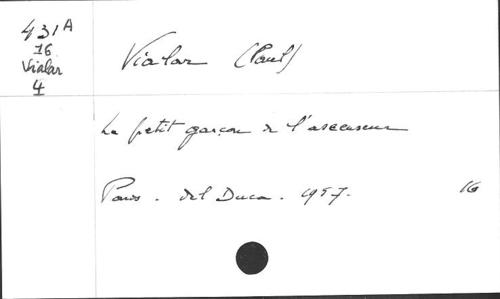 431A
16
Vialar
4
Vialar (Paul)
Le petit garçon de l'ascenseur
Paris. del Duca. 1957.
16